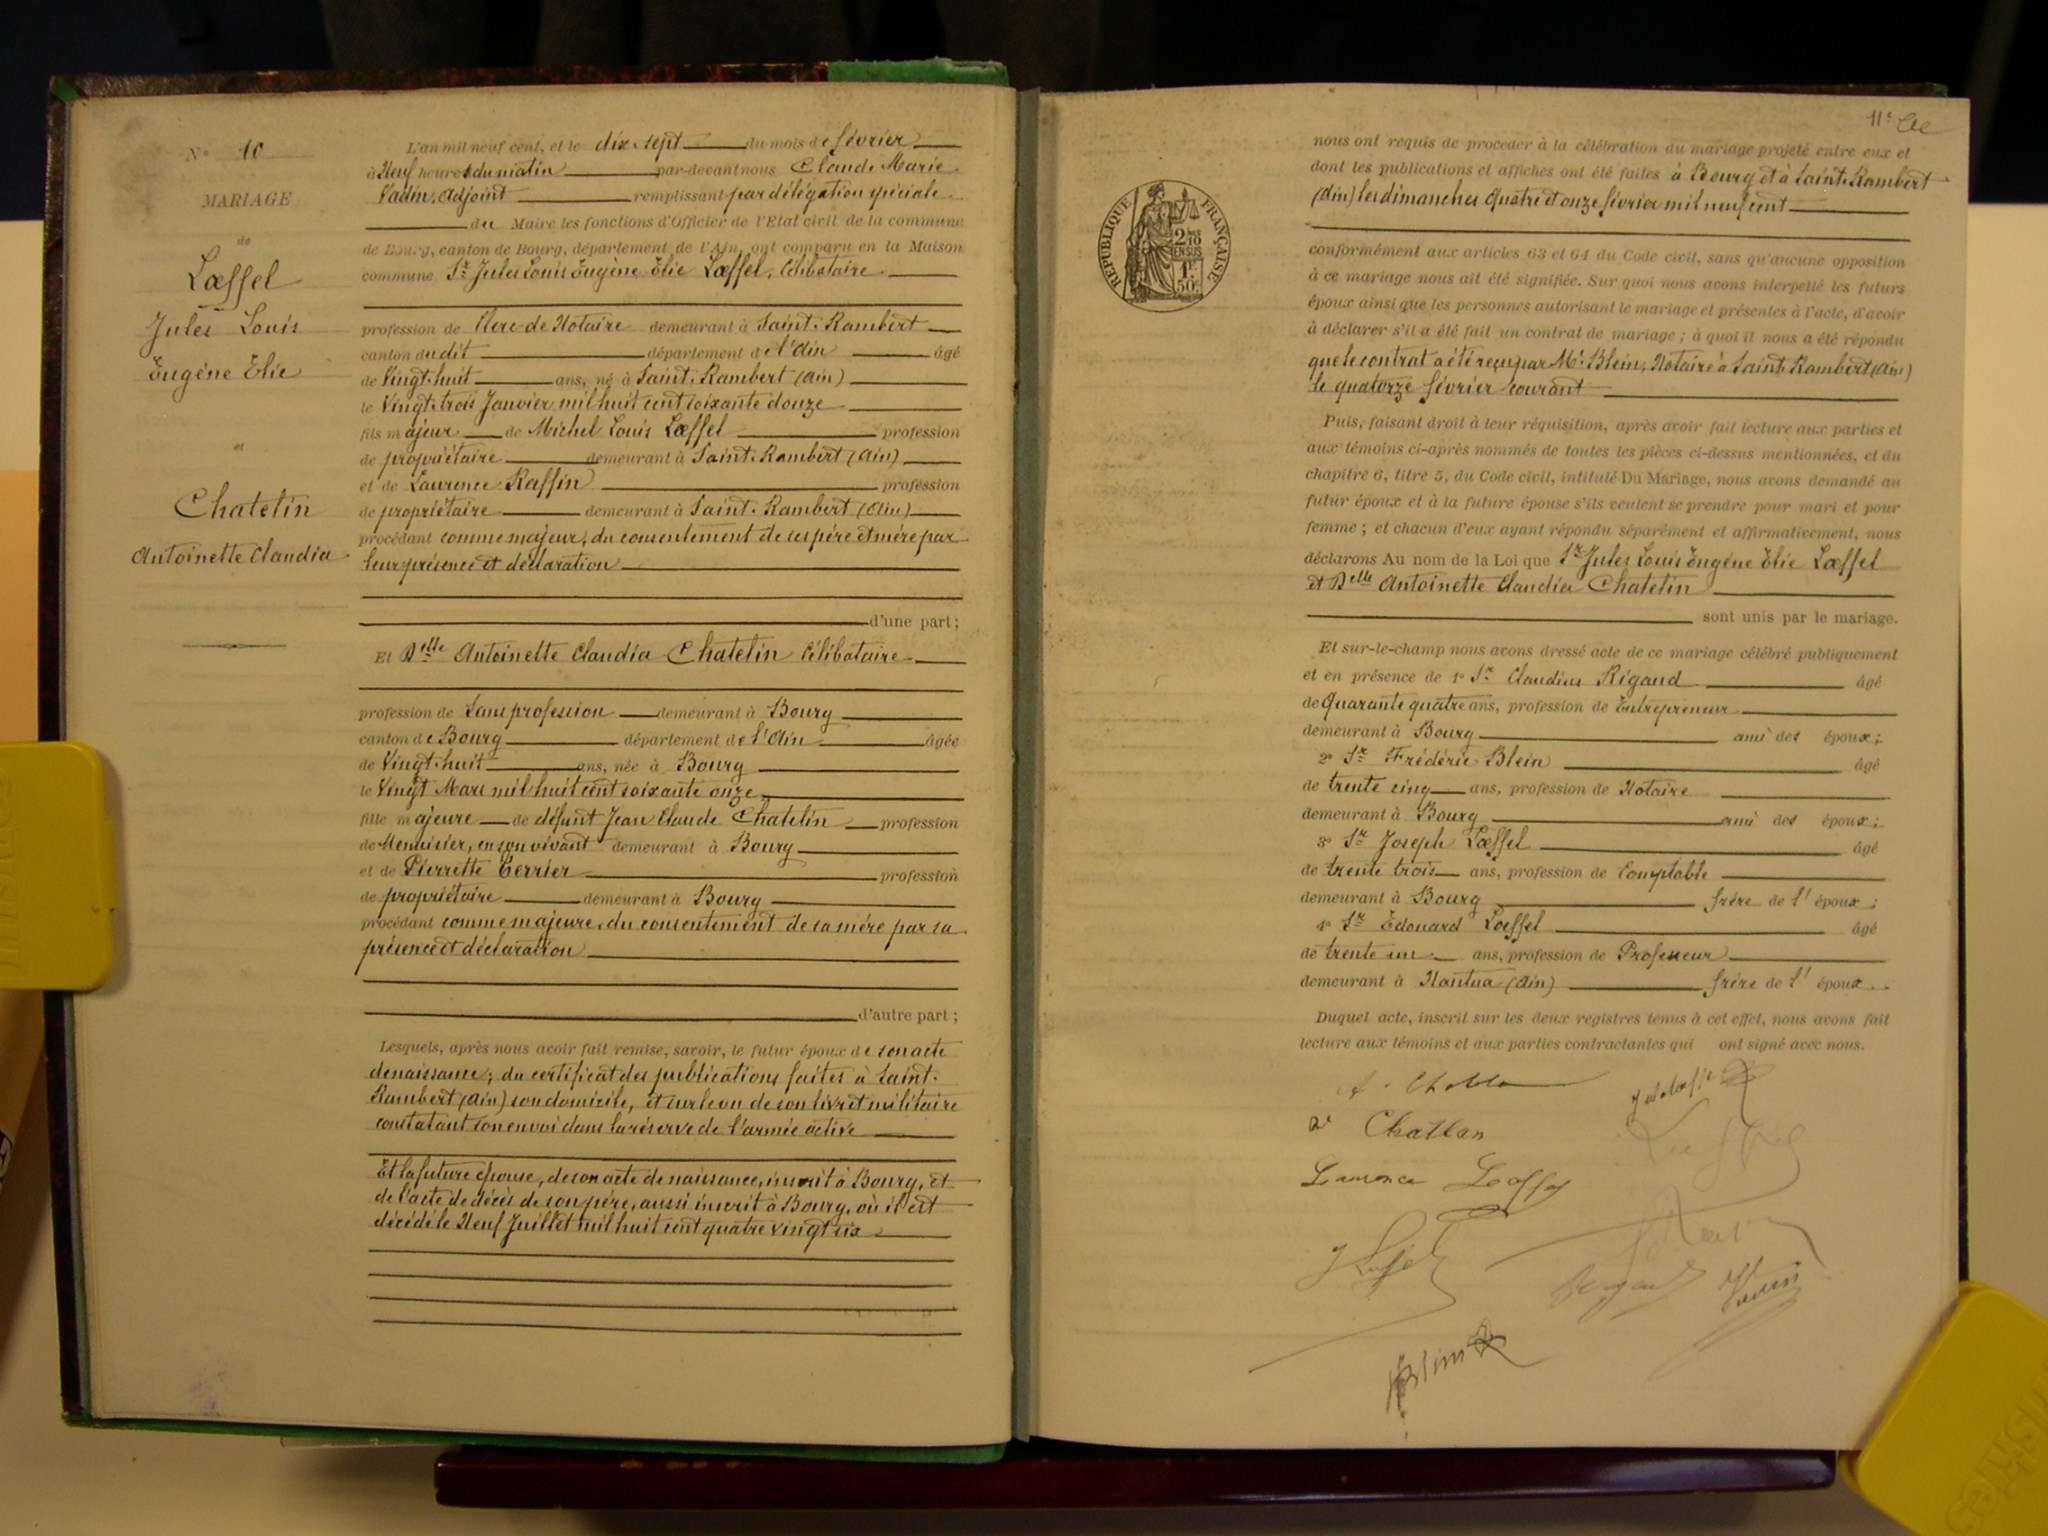 N° 10
MARIAGE
de
Lœffel
Jules Louis
Eugène Elie
et
Chatelin
Antoinette Claudia
L'an mil neuf cent, et le dix sept du mois de février
à Neuf heures du matin par-devant nous Claude Marie
Vadin, Adjoint remplissant par délégation spéciale
du Maire les fonctions d'Officier de l'Etat civil de la commune
de Bourg, canton de Bourg, département de l'Ain, ont comparu en la Maison
commune Sr Jules Louis Eugène Elie Lœffel, Célibataire
profession de Clerc de Notaire demeurant à Saint-Rambert
canton dudit département de l'Ain âgé
de Vingt-huit ans, né à Saint-Rambert (Ain)
le Vingt-trois Janvier mil huit cent soixante douze
fils majeur de Michel Louis Lœffel profession
de propriétaire demeurant à Saint-Rambert (Ain)
et de Laurence Raffin profession
de propriétaire demeurant à Saint-Rambert (Ain)
procédant comme majeur, du consentement de ses père et mère par
leur présence et déclaration
d'une part;
Et Delle Antoinette Claudia Chatelin Célibataire
profession de Sans profession demeurant à Bourg
canton de Bourg département de l'Ain âgée
de Vingt-huit ans, née à Bourg
le Vingt Mars mil huit cent soixante onze
fille majeure de défunt Jean Claude Chatelin profession
de Menuisier, en son vivant demeurant à Bourg
et de Pierrette Terrier profession
de propriétaire demeurant à Bourg
procédant comme majeure, du consentement de sa mère par sa
présence et déclaration
d'autre part;
Lesquels, après nous avoir fait remise, savoir, le futur époux de son acte
de naissance; du certificat des publications faites à Saint-
Rambert (Ain) son domicile, et sur le vu de son livret militaire
constatant son envoi dans la réserve de l'armée active
Et la future épouse, de son acte de naissance, inscrit à Bourg, et
de l'acte de décès de son père, aussi inscrit à Bourg, où il est
décédé le Neuf Juillet mil huit cent quatre vingt six
11e
RÉPUBLIQUE FRANÇAISE
2/10 EN SUS
1F 50c
nous ont requis de procéder à la célébration du mariage projeté entre eux et
dont les publications et affiches ont été faites à Bourg et à Saint-Rambert
(Ain) les dimanches quatre et onze février mil neuf cent
conformément aux articles 63 et 64 du Code civil, sans qu'aucune opposition
à ce mariage nous ait été signifiée. Sur quoi nous avons interpellé les futurs
époux ainsi que les personnes autorisant le mariage et présentes à l'acte, d'avoir
à déclarer s'il a été fait un contrat de mariage; à quoi il nous a été répondu
que le contrat a été reçu par Me Blein, Notaire à Saint-Rambert (Ain)
le quatorze février courant
Puis, faisant droit à leur réquisition, après avoir fait lecture aux parties et
aux témoins ci-après nommés de toutes les pièces ci-dessus mentionnées, et du
chapitre 6, titre 5, du Code civil, intitulé Du Mariage, nous avons demandé au
futur époux et à la future épouse s'ils veulent se prendre pour mari et pour
femme; et chacun d'eux ayant répondu séparément et affirmativement, nous
déclarons Au nom de la Loi que Sr Jules Louis Eugène Elie Lœffel
et Delle Antoinette Claudia Chatelin
sont unis par le mariage.
Et sur-le-champ nous avons dressé acte de ce mariage célébré publiquement
et en présence de 1° Sr Claudius Rigaud âgé
de Quarante quatre ans, profession de Entrepreneur
demeurant à Bourg ami des époux;
2° Sr Frédéric Blein âgé
de trente cinq ans, profession de Notaire
demeurant à Bourg ami des époux;
3° Sr Joseph Lœffel âgé
de trente trois ans, profession de Comptable
demeurant à Bourg frère de l'époux;
4° Sr Edouard Lœffel âgé
de trente un ans, profession de Professeur
demeurant à Nantua (Ain) frère de l'époux.
Duquel acte, inscrit sur les deux registres tenus à cet effet, nous avons fait
lecture aux témoins et aux parties contractantes qui ont signé avec nous.
Laurence Lœffel